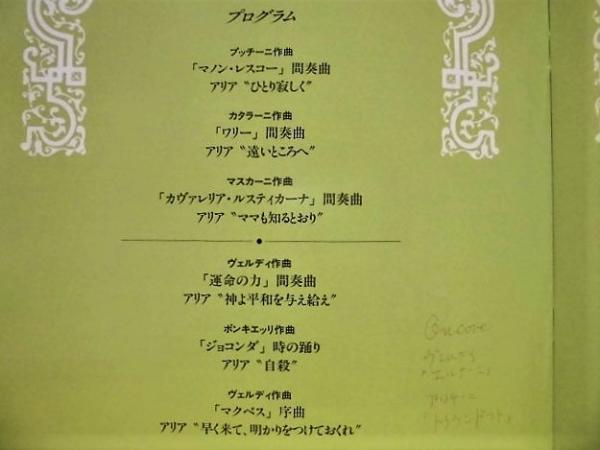 プログラム
プッチーニ作曲
「マノン・レスコー」間奏曲
アリア〝ひとり寂しく〟
カタラーニ作曲
「ワリー」間奏曲
アリア〝遠いところへ〟
マスカーニ作曲
「カヴァレリア・ルスティカーナ」間奏曲
アリア〝ママも知るとおり〟
ヴェルディ作曲
「運命の力」間奏曲
アリア〝神よ平和を与え給え〟
ポンキエッリ作曲
「ジョコンダ」時の踊り
アリア〝自殺〟
ヴェルディ作曲
「マクベス」序曲
アリア〝早く来て、明かりをつけておくれ〟
Encore